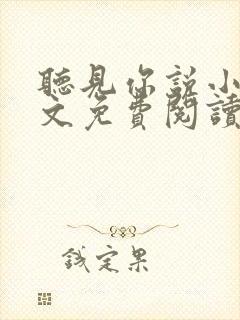 聽見你説小
文免費閱讀
錢定果